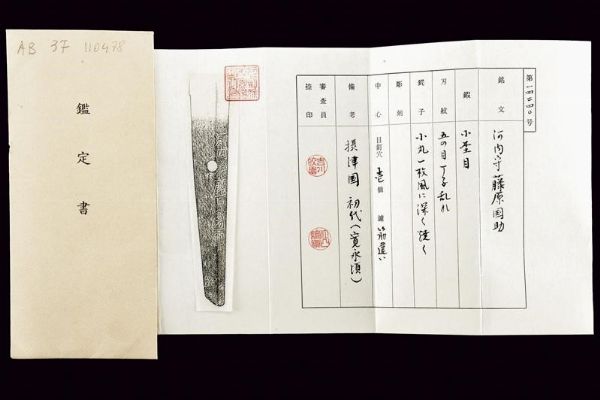 AB 37 110498
鑑定書
第一四二四〇号
銘文 河内守藤原国助
鍛 小杢目
刃紋 五の目丁子乱れ
鋩子 小丸一枚風に深く焼く
彫刻
中心 目釘穴 壱個 鑢 筋違い
備考 摂津国 初代(寛永頃)
審査員
證印